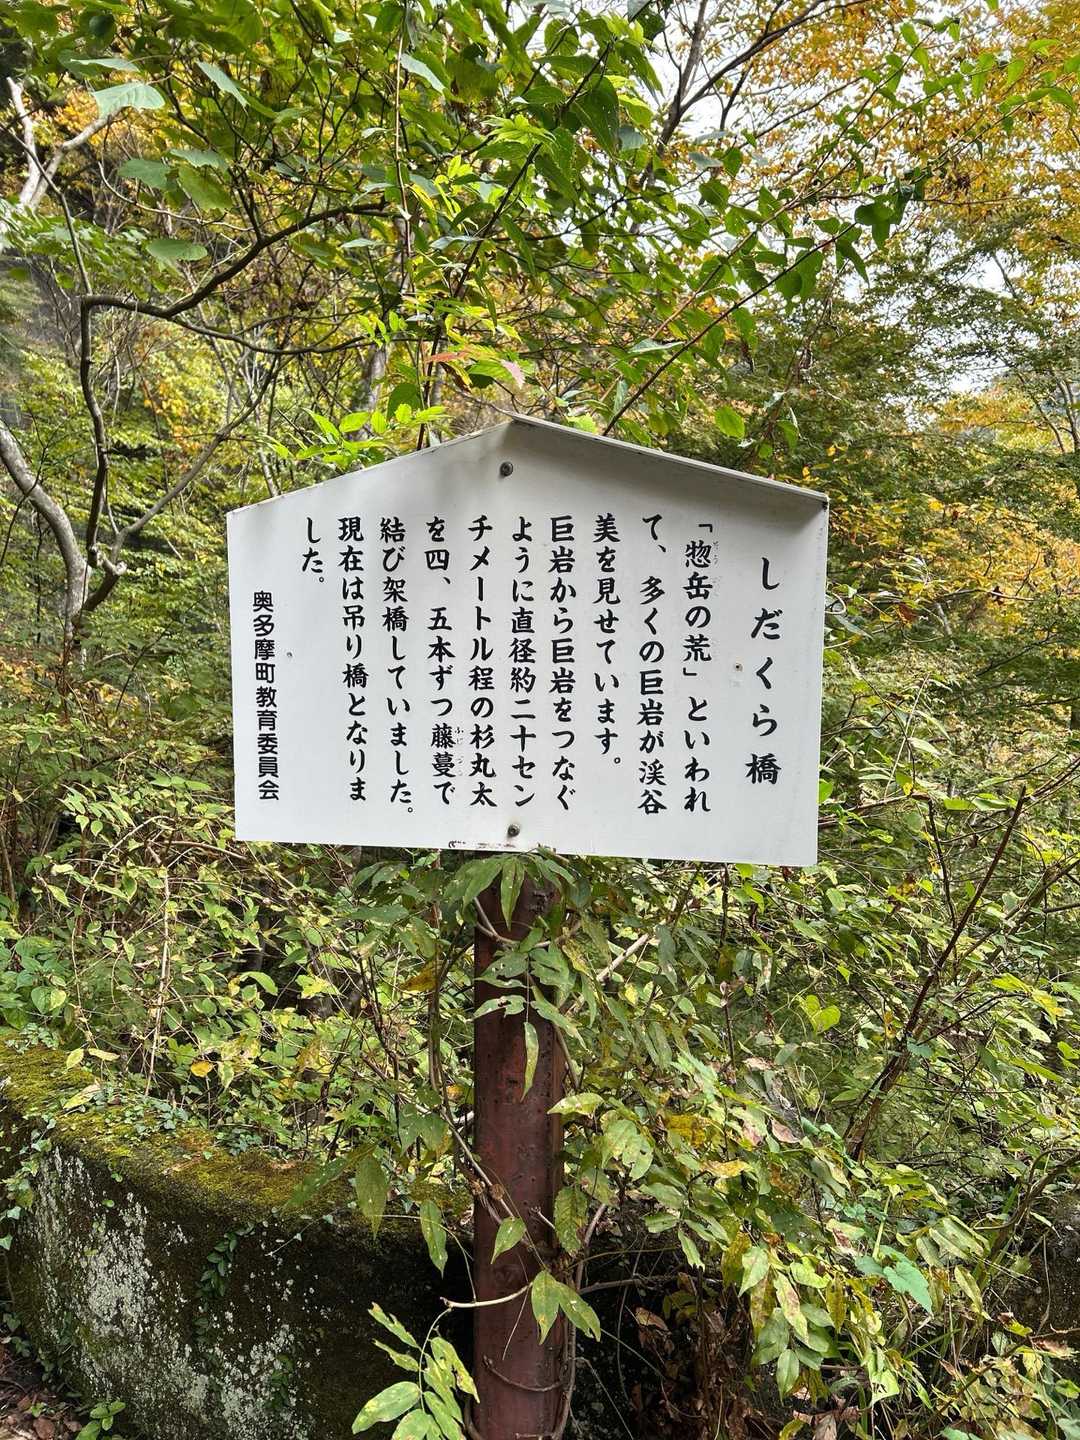 しだくら橋
「惣岳の荒」といわれ
て、多くの巨岩が渓谷
美を見せています。
巨岩から巨岩をつなぐ
ように直径約二十セン
チメートル程の杉丸太
を四、五本ずつ藤蔓で
結び架橋していました。
現在は吊り橋となりま
した。
奥多摩町教育委員会